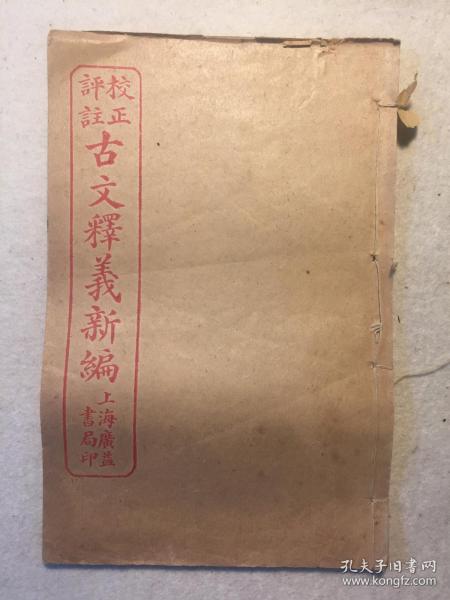 校正
評註
古文釋義新編
上海廣益
書局印
孔夫子旧书网
www.kongfz.com